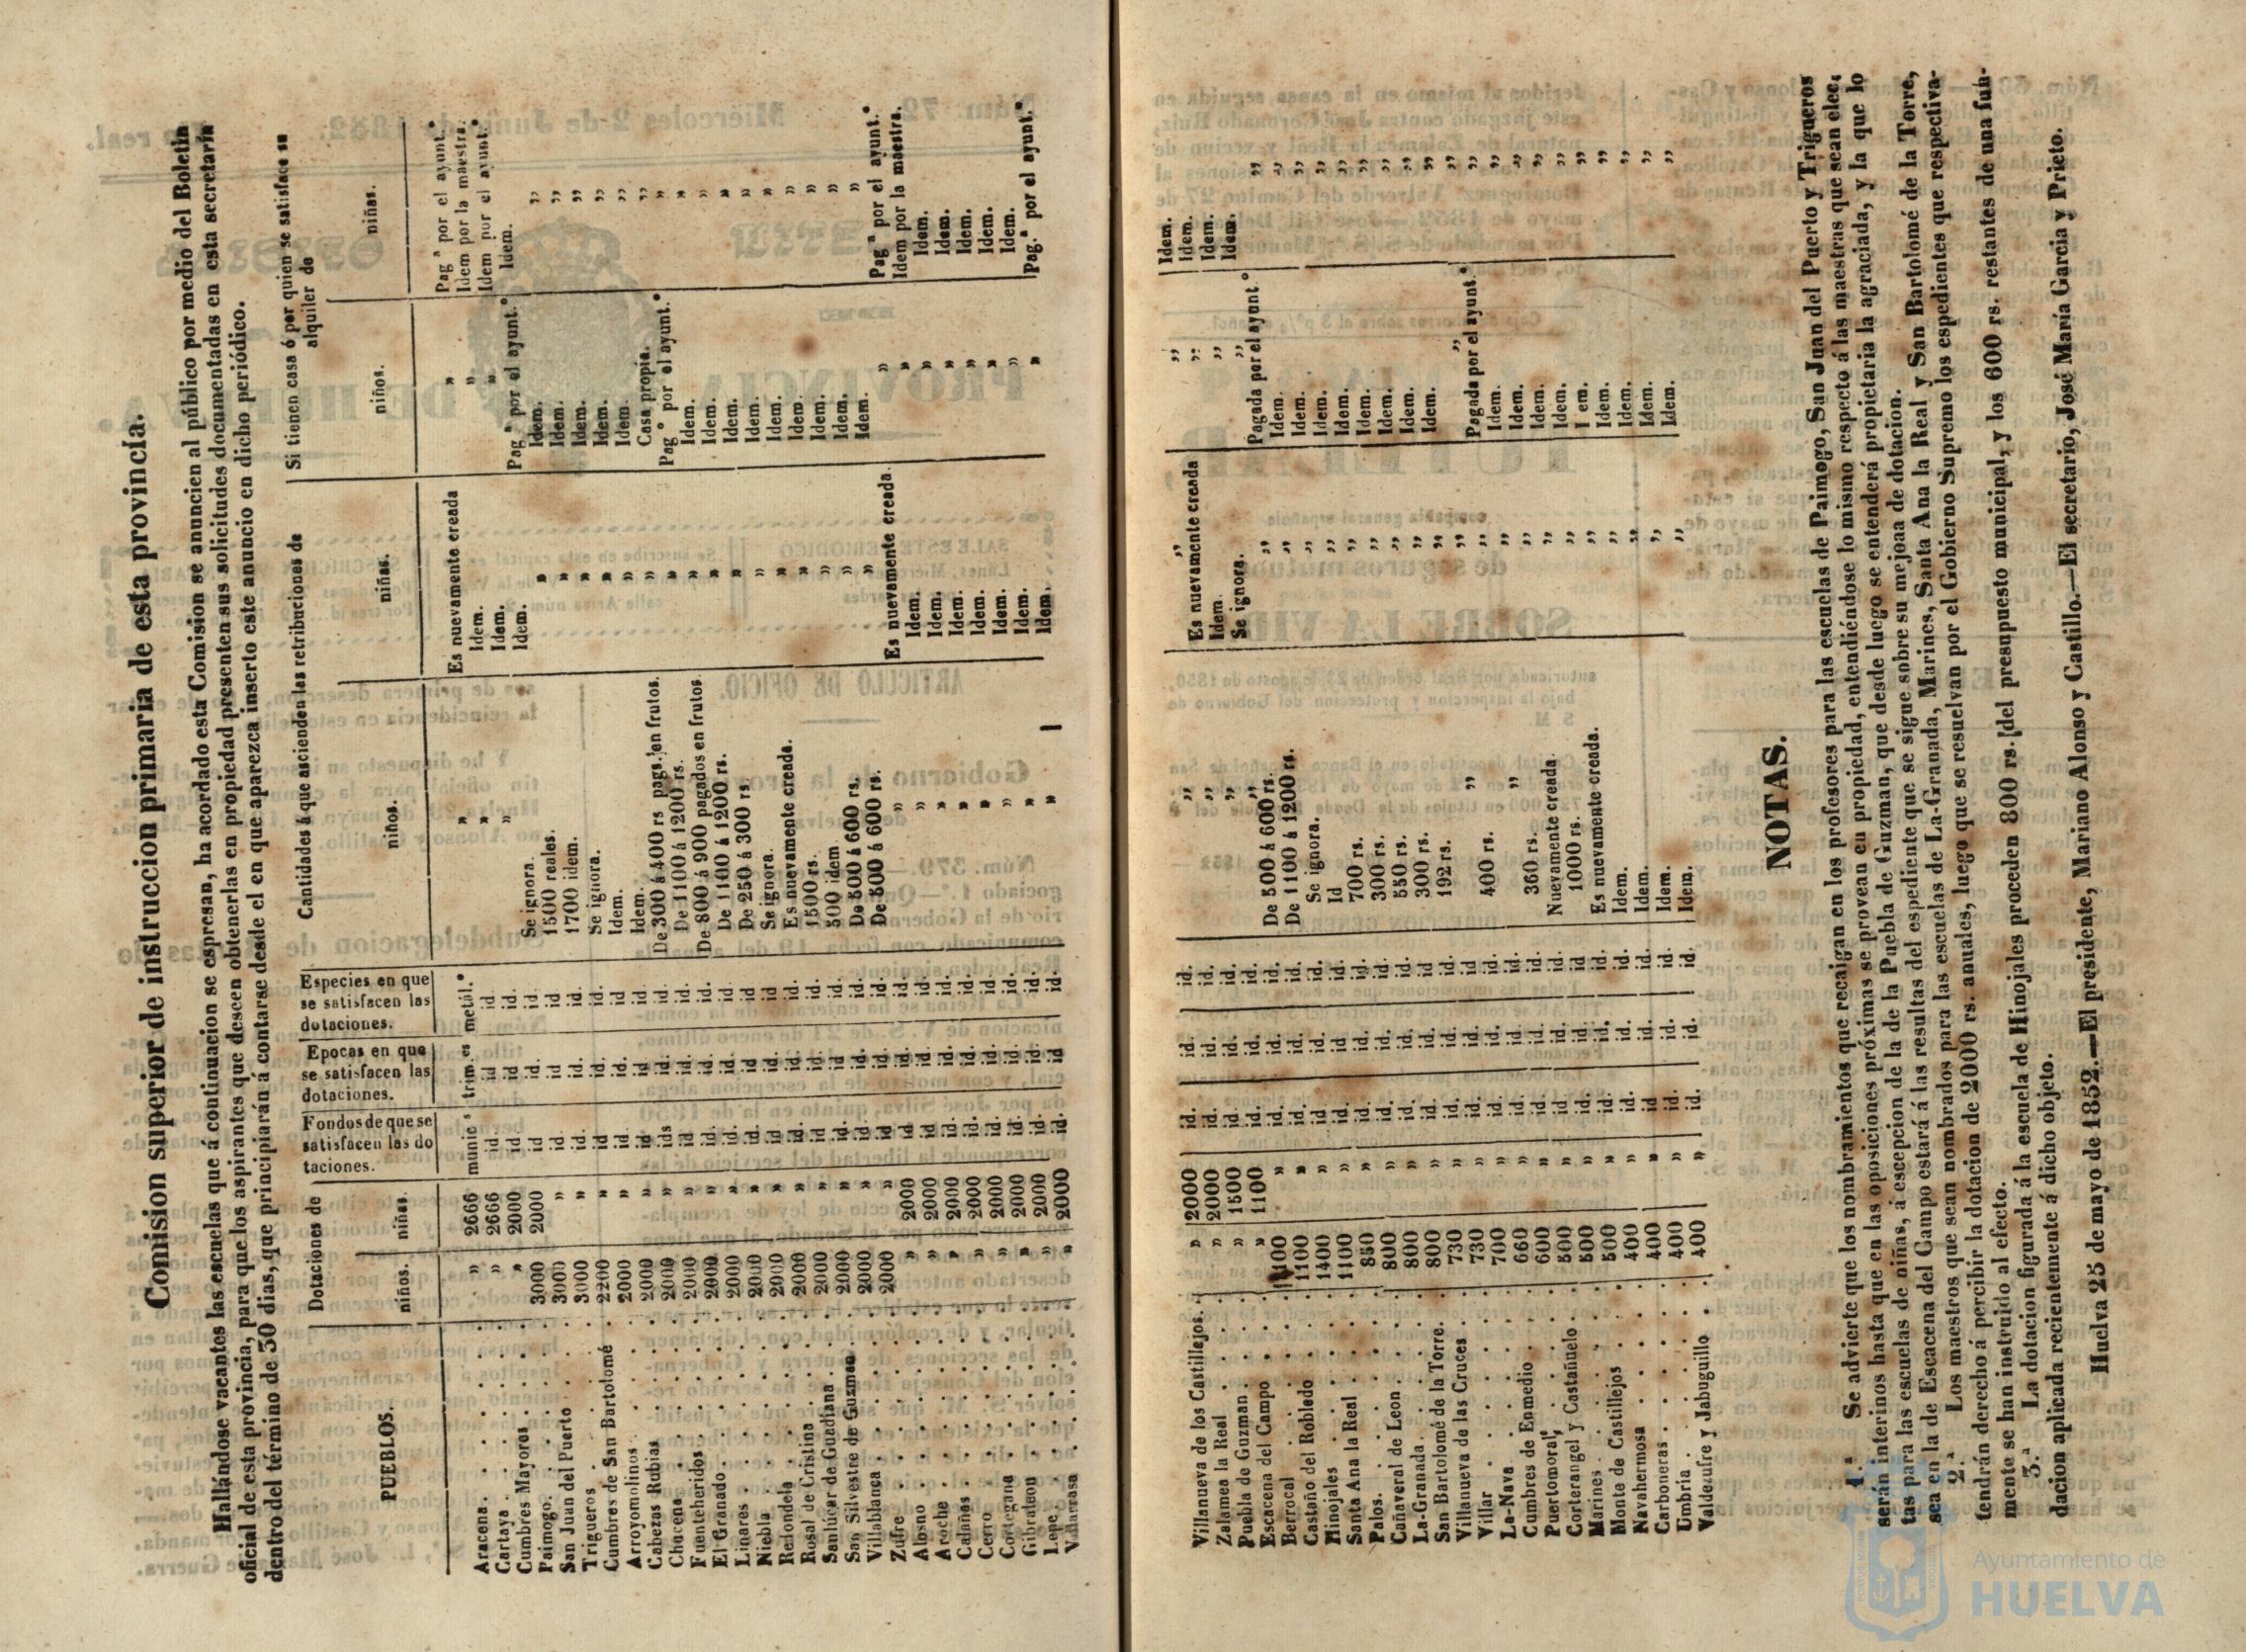 Comision superior de instruccion primaria de esta provincia.
Hallándose vacantes las escuelas que á continuacion se espresan, ha acordado esta Comision se anuncien al público por medio del Boletin
oficial de esta provincia, para que los aspirantes que deseen obtenerlas en propiedad presenten sus solicitudes documentadas en esta secretaría
dentro del término de 30 dias, que principiarán á contarse desde el en que aparezca inserto este anuncio en dicho periódico.
PUEBLOS.
Dotaciones de
niños. niñas.
Fondos de que se
satisfacen las do
taciones.
Epocas en que
se satisfacen las
dotaciones.
Especies en que
se satisfacen las
dotaciones.
Cantidades á que ascienden las retribuciones de
niños. niñas.
Si tienen casa ó por quien se satisface su
alquiler de
niños. niñas.
Aracena. . . . . » 2666 munic s trim. es metál.º » Es nuevamente creada » Pag ª por el ayunt.º
Cartaya. . . . . » 2666 id. id id » Idem. » Idem por la maestra.
Cumbres Mayores. . . » 2000 id id. id. » Idem. » Idem por el ayunt.º
Paimogo. . . . . 3000 2000 id id. id. Se ignora. Idem. Pag ª por el ayunt.º Idem.
San Juan del Puerto . . . 3000 » id. id. id. 1500 reales. » Idem. »
Trigueros . . . . 3000 » id. id. id. 1700 idem. » Idem. »
Cumbres de San Bartolomé 2200 » id id. id. Se ignora. » Idem. »
Arroyomolinos. . . . 2000 » id. id. id Idem. » Idem. »
Cabezas Rubias . . . 2000 » id id. id. Idem. » Idem. »
Chucena . . . . 2000 » ids id. id. De 300 á 400 rs pags. en frutos. » Casa propia. »
Fuenteheridos . . . 2000 » id. id. id. De 1100 á 1200 rs. » Pagª por el ayunt.º »
El Granado. . . . 2000 » id. id. id. De 800 á 900 pagados en frutos » Idem. »
Linares . . . . 2000 » id. id. id. De 1100 á 1200 rs. » Idem. »
Niebla . . . . 2000 » id. id. id De 250 á 300 rs » Idem. »
Redondela . . . . 2000 » id. id. id Se ignora. » Idem. »
Rosal de Cristina . . . 2000 » id. id. id. Es nuevamente creada. » Idem. »
Sanlúcar de Guadiana . . 2000 » id id. id. 1500 rs. » Idem. »
San Silvestre de Guzman 2000 » id. id. id. 500 idem » Idem. »
Villablanca . . . . 2000 » id. id. id. De 500 á 600 rs. » Idem. »
Zufre . . . . 2000 » id. id. id. De 500 á 600 rs. » Idem. »
Alosno . . . . » 2000 id. id. id. » Es nuevamente creada. » Pag ª por el ayunt.º
Aroche . . . . » 2000 id. id. id. » Idem. » Idem por la maestra.
Calañas . . . . » 2000 id. id. id. » Idem. » Idem.
Cerro . . . . » 2000 id. id. id. » Idem. » Idem.
Cortegana . . . . » 2000 id. id. id. » Idem. » Idem.
Gibraleon . . . . » 2000 id. id. id. » Idem. » Idem.
Lepe . . . . » 2000 id. id. id. » Idem. » Idem.
Villarrasa . . . . » 2000 id. id id » Idem. » Pag.ª por el ayunt.º
Villanueva de los Castillejos. » 2000 id. id. id. » » » Idem.
Zalamea la Real . . . » 2000 id. id. id. » Es nuevamente creada » Idem.
Puebla de Guzman . . . » 1500 id. id. id. » Idem. » Idem.
Escacena del Campo . . » 1100 id. id. id. » Se ignora. » Idem.
Berrocal . . . . 1100 » id. id. id. De 500 á 600 rs. » Pagada por el ayunt.º »
Castaño del Robledo . . 1100 » id. id. id. De 1100 á 1200 rs. » Idem. »
Hinojales . . . . 1400 » id. id. id. Se ignora. » Idem. »
Santa Ana la Real . . . 1100 » id. id. id. Id » Idem. »
Palos. . . . . 850 » id. id. id. 700 rs. » Idem. »
Cañaveral de Leon . . . 800 » id. id. id. 300 rs. » Idem. »
La-Granada. . . . 800 » id. id. id. 550 rs. » Idem. »
San Bartolomé de la Torre. 800 » id. id. id. 300 rs. » Idem. »
Villanueva de las Cruces . 730 » id. id. id. 192 rs. » Idem. »
Villar . . . . 730 » id. id. id » » » »
La-Nava . . . . 700 » id. id. id. 400 rs. » Pagada por el ayunt.º »
Cumbres de Enmedio . . 660 » id. id. id. » » Idem. »
Puertomoral . . . . 600 » id. id. id. 360 rs. » Idem. »
Corterangel y Castañuelo . 500 » id. id. id. Nuevamente creada. » Idem. »
Marines . . . . 500 » id. id. id 1000 rs. » Idem. »
Monte de Castillejos . . 500 » id. id. id. Es nuevamente creada. » I em. »
Navahermosa . . . . 400 » id. id. id. Idem. » Idem. »
Carboneras . . . . 400 » id id. id. Idem. » Idem. »
Umbria . . . . 400 » id. id. id. Idem. » Idem. »
Valdeufre y Jabuguillo . . 400 » id. id. id. Idem. » Idem. »
NOTAS.
1.ª Se advierte que los nombramientos que recaigan en los profesores para las escuelas de Paimogo, San Juan del Puerto y Trigueros
serán interinos hasta que en las oposiciones próximas se provean en propiedad, entendiéndose lo mismo respecto á las maestras que sean elec-
tas para las escuelas de niñas, á escepcion de la de la Puebla de Guzman, que desde luego se entenderá propietaria la agraciada, y la que lo
sea en la de Escacena del Campo estará á las resultas del espediente que se sigue sobre su mejoaa de dotacion.
2.ª Los maestros que sean nombrados para las escuelas de La-Granada, Marines, Santa Ana la Real y San Bartolomé de la Torre,
tendrán derecho á percibir la dotacion de 2000 rs. anuales, luego que se resuelvan por el Gobierno Supremo los espedientes que respectiva-
mente se han instruido al efecto.
3.ª La dotacion figurada á la escuela de Hinojales proceden 800 rs. del presupuesto municipal, y los 600 rs. restantes de una fun-
dacion aplicada recientemente á dicho objeto.
Huelva 25 de mayo de 1852.—El presidente, Mariano Alonso y Castillo.—El secretario, José María Garcia y Prieto.
Ayuntamiento de
HUELVA